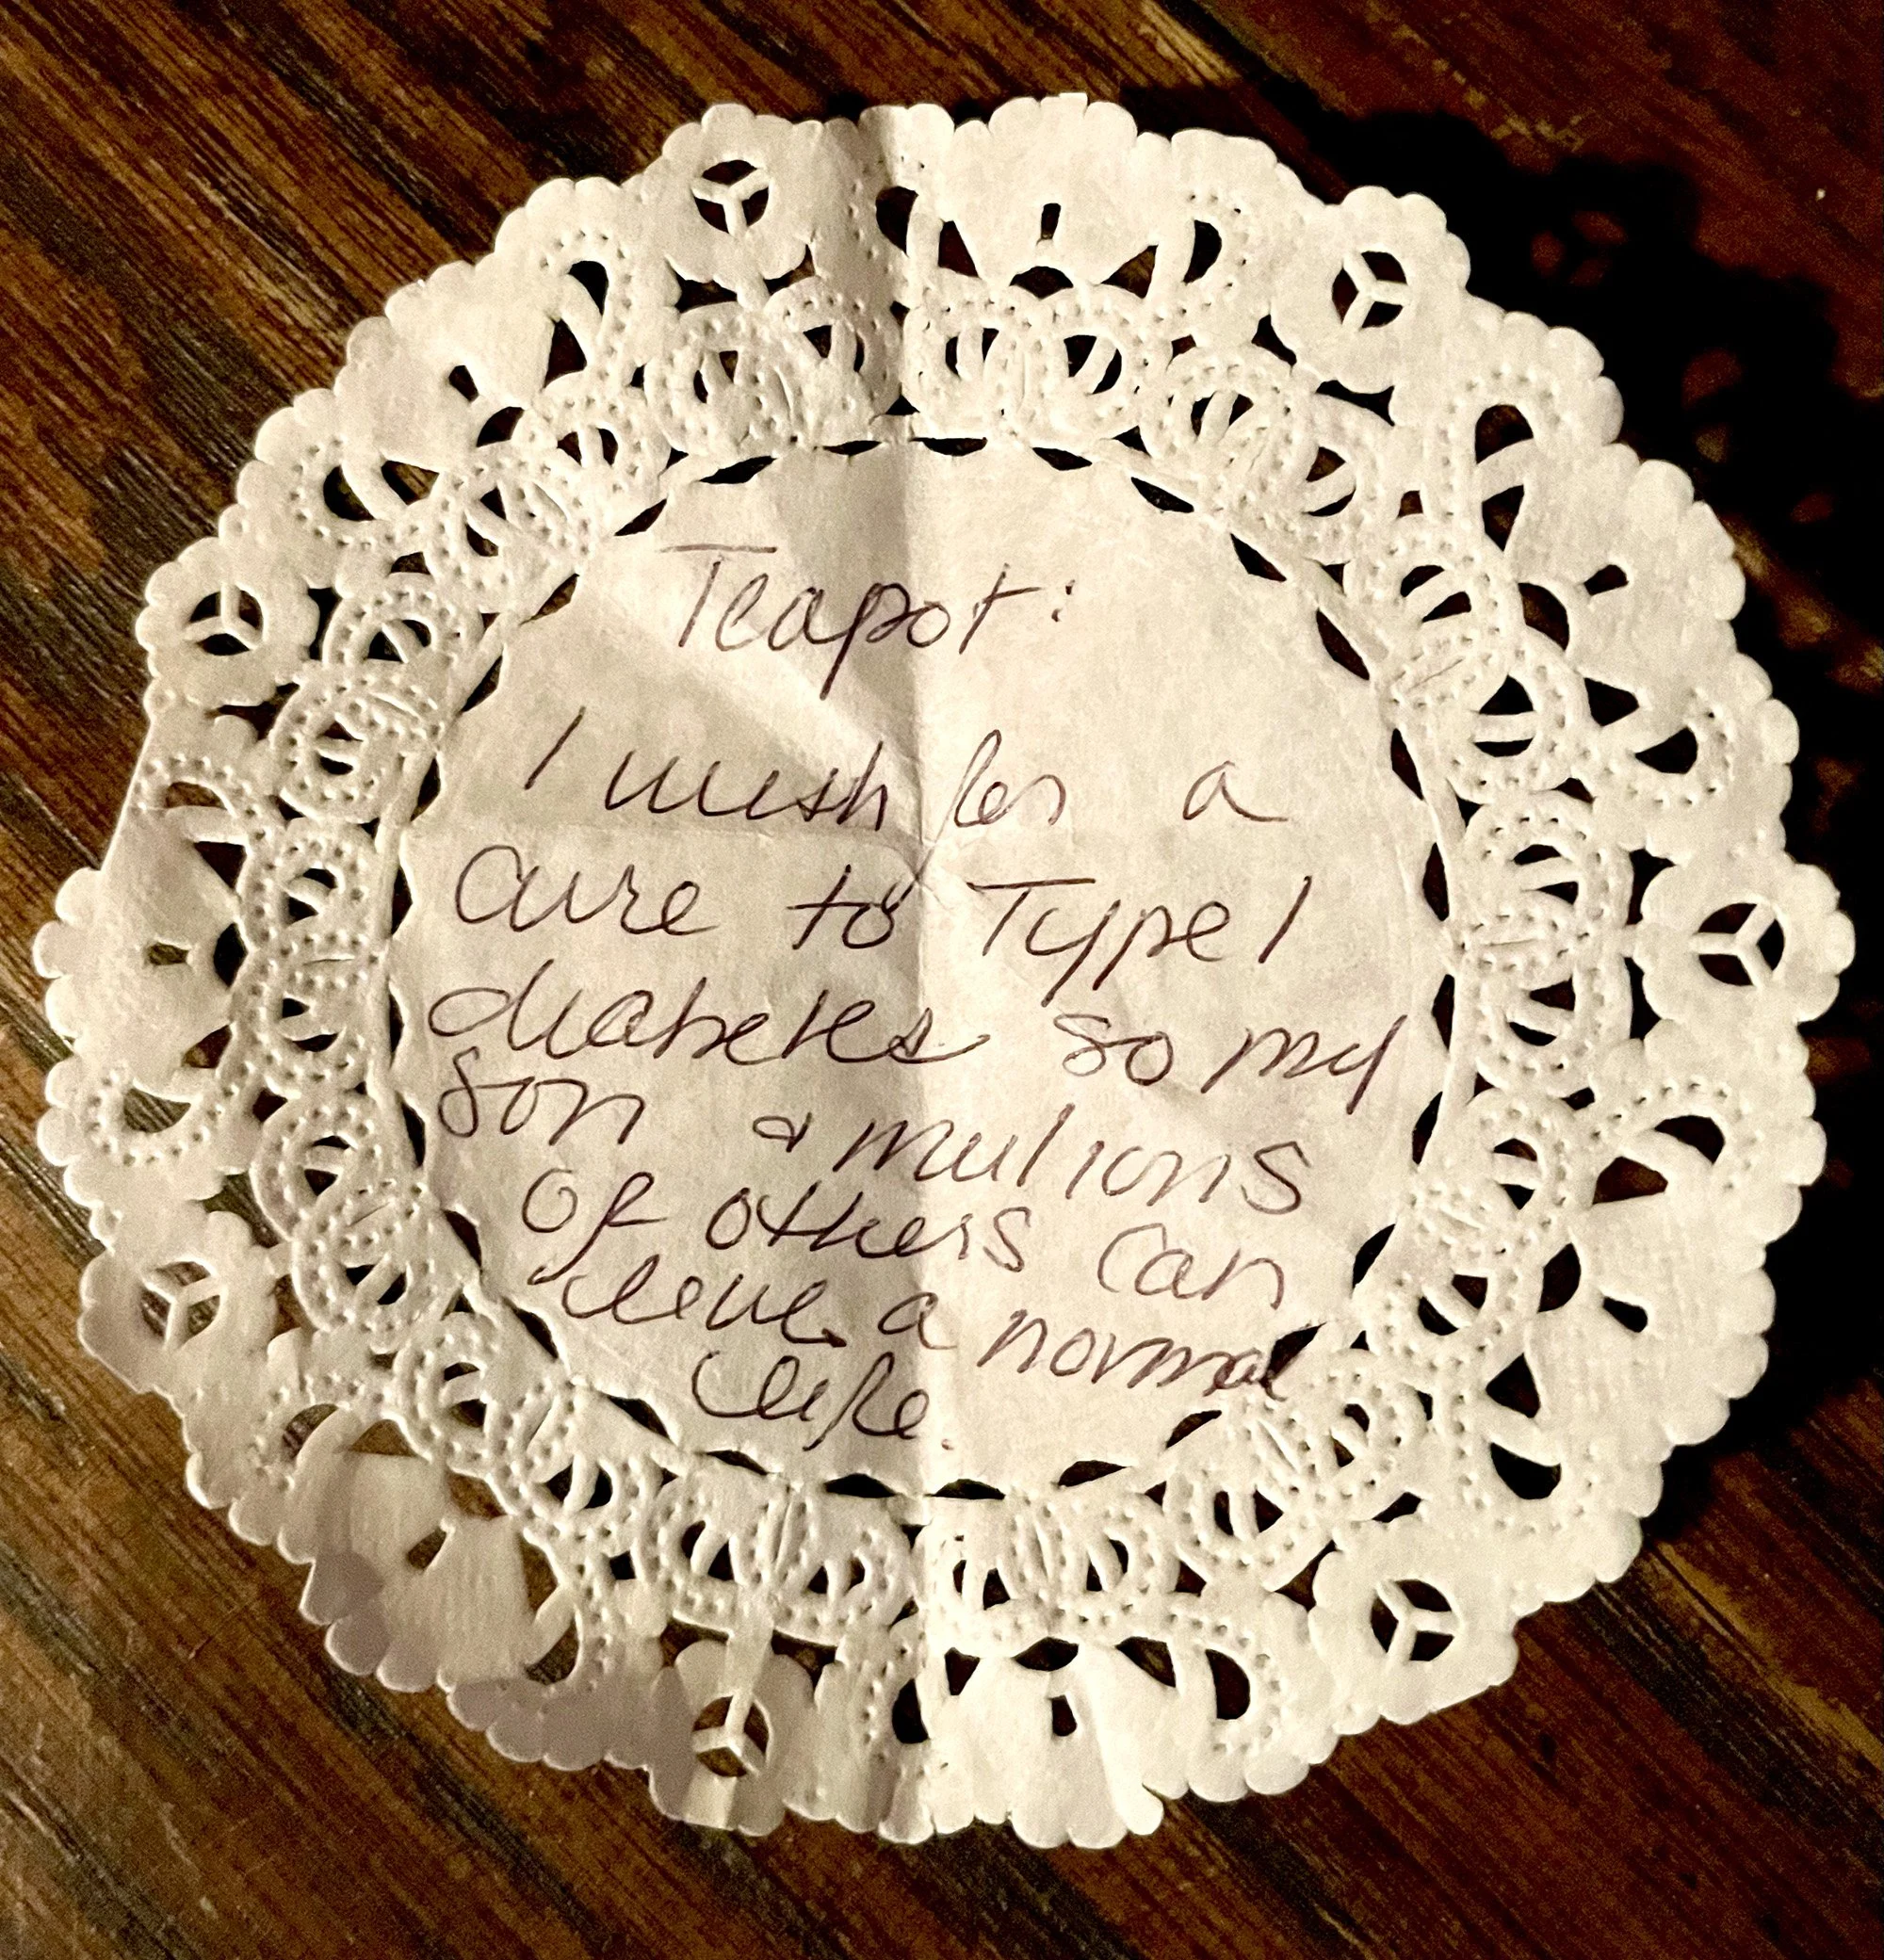 Teapot:
I wish for a
cure to Type 1
diabetes so my
son & millions
of others can
live a normal
life.